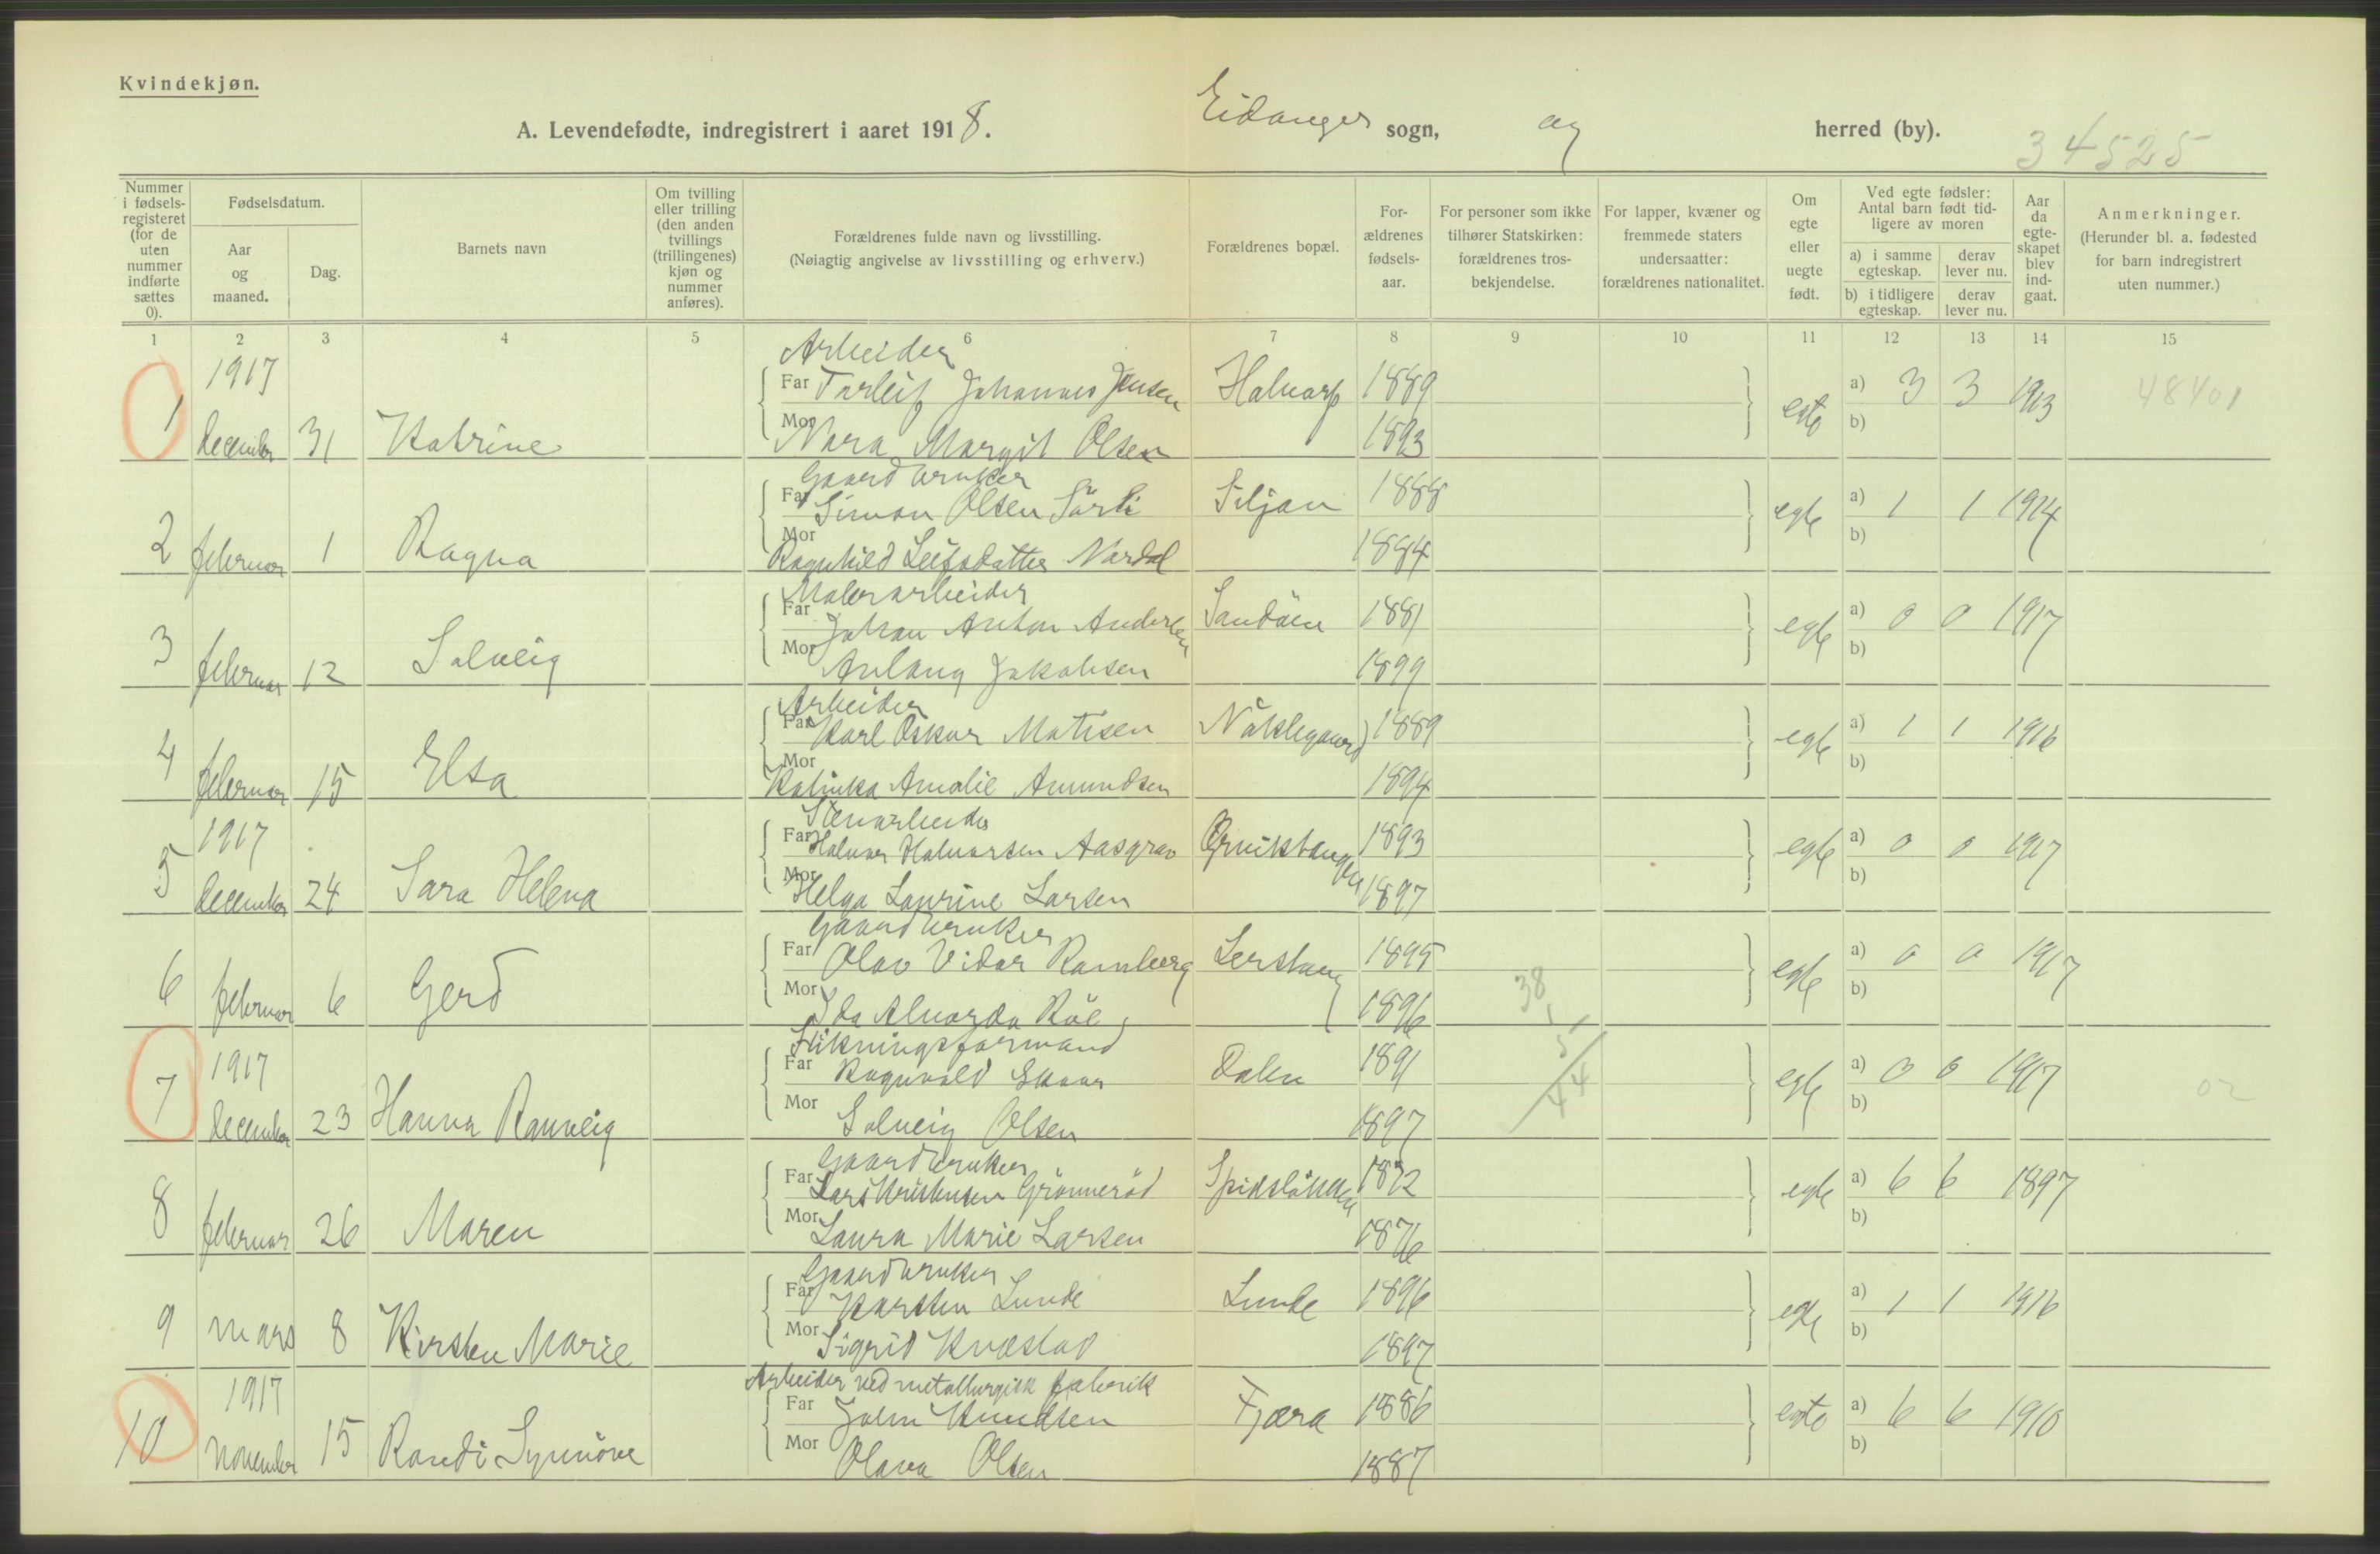 Kvindekjøn.
A. Levendefødte, indregistrert i aaret 1918. Eidanger sogn, og herred (by).
34525
Nummer i fødselsregisteret (for de uten nummer indførte sættes 0).
Fødselsdatum.
Aar og maaned.
Dag.
Barnets navn
Om tvilling eller trilling (den anden tvillings (trillingenes) kjøn og nummer anføres).
Forældrenes fulde navn og livsstilling.
(Nøiagtig angivelse av livsstilling og erhverv.)
Forældrenes bopæl.
Forældrenes fødselsaar.
For personer som ikke tilhører Statskirken: forældrenes trosbekjendelse.
For lapper, kvæner og fremmede staters undersaatter: forældrenes nationalitet.
Om egte eller uegte født.
Ved egte fødsler: Antal barn født tidligere av moren
a) i samme egteskap.
derav lever nu.
b) i tidligere egteskap.
derav lever nu.
Aar da egteskapet blev indgaat.
Anmerkninger.
(Herunder bl. a. fødested for barn indregistrert uten nummer.)
1 2 3 4 5 6 7 8 9 10 11 12 13 14 15
1917 Arbeider
Far Torleif Johannes Jensen Halvarp 1889 a) 3 3 1913 48401
1 december 31 Katrine Mor Nora Margit Olsen 1893 egte b)
Gaardbruker
Far Simon Olsen Sørli Siljan 1888 a) 1 1 1914
2 februar 1 Ragna Mor Ragnhild Leifsdatter Nordal 1884 egte b)
Malerarbeider
Far Johan Anton Andersen Sandøen 1881 a) 0 0 1917
3 februar 12 Solveig Mor Anlaug Jakobsen 1899 egte b)
Arbeider
Far Karl Oskar Matisen Nøklegaard 1889 a) 1 1 1916
4 februar 15 Elsa Mor Katinka Amalie Amundsen 1894 egte b)
1917 Stenarbeider
Far Halvor Halvorsen Aasgrav Ørvikstangen 1893 a) 0 0 1917
5 december 24 Sara Helena Mor Helga Laurine Larsen 1897 egte b)
Gaardbruker
Far Olav Vidar Ramberg Lerstang 1895 a) 0 0 1917
6 februar 6 Gerd Mor Ida Alvarda Røe 1896 egte b)
38
1917 Stikningsformand
Far Ragnvald Skaar Dalen 1891 5 a) 0 0 1917
7 december 23 Hanna Ranveig Mor Solveig Olsen 1897 44 egte b) 02
Gaardbruker
Far Lars Kristensen Grønnerød 1872 a) 6 6 1897
8 februar 26 Maren Mor Laura Marie Larsen 1876 egte b)
Gaardbruker
Far Karsten Lunde Lunde 1896 a) 1 1 1916
9 mars 8 Kirsten Marie Mor Sigrid Kvæstad 1897 egte b)
1917 Arbeider ved metallurgisk fabrik
Far John Knudsen Fjæra 1886 a) 6 6 1910
10 november 15 Randi Synnøve Mor Olava Olsen 1887 egte b)